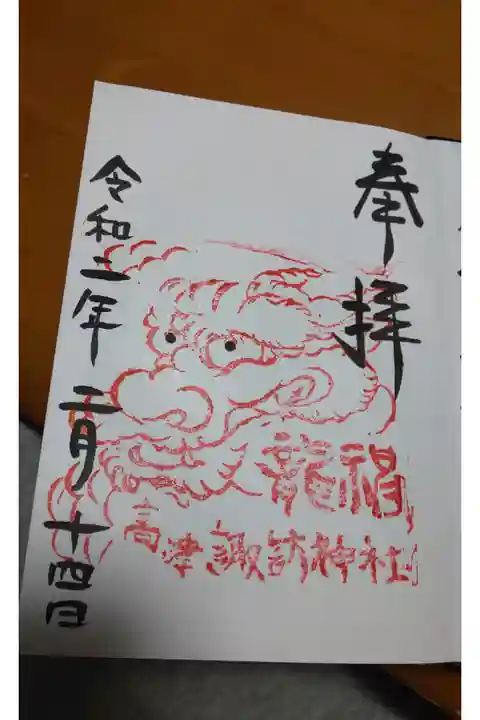 奉拝
福龍
高津諏訪神社
令和二年二月十四日